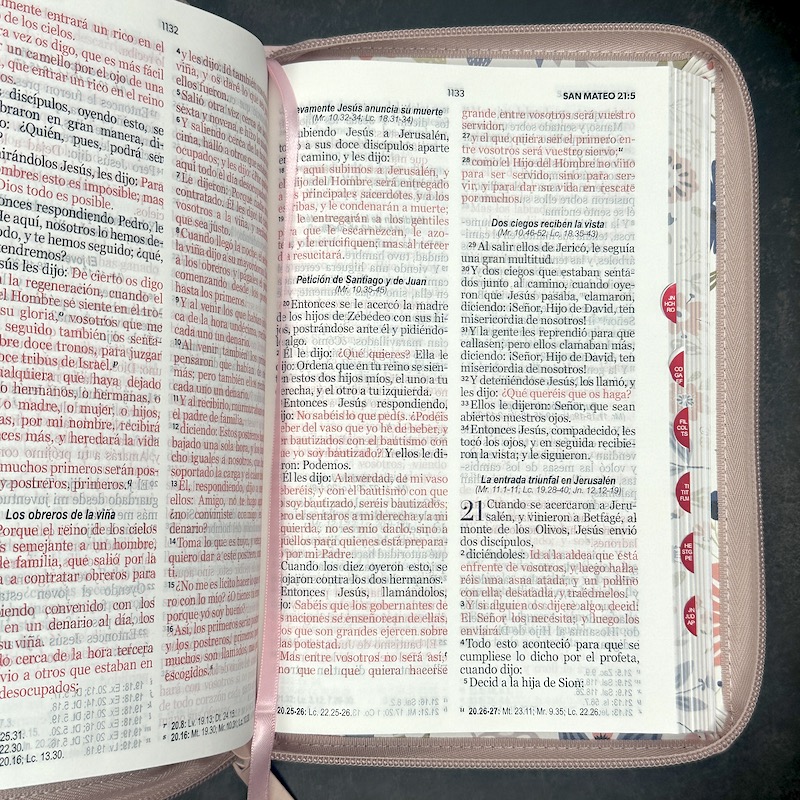 1132
mente entrará un rico en el
de los cielos.
ra vez os digo, que es más fácil
un camello por el ojo de una
que entrar un rico en el reino
discípulos, oyendo esto, se
braron en gran manera, di-
¿Quién, pues, podrá ser
mirándolos Jesús, les dijo: Para
mbres esto es imposible; mas
Dios todo es posible.
onces respondiendo Pedro, le
aquí, nosotros lo hemos de-
odo, y te hemos seguido; ¿qué,
tendremos?
sús les dijo: De cierto os digo
la regeneración, cuando el
Hombre se siente en el tro-
su gloria, vosotros que me
seguido también os senta-
doce tronos, para juzgar
oce tribus de Israel.
alquiera que haya dejado
o hermanos, o hermanas, o
o madre, o mujer, o hijos,
as, por mi nombre, recibirá
ces más, y heredará la vida
muchos primeros serán pos-
y postreros, primeros.
Los obreros de la viña
Porque el reino de los cielos
semejante a un hombre,
de familia, que salió por la
a contratar obreros para
iendo convenido con los
en un denario al día, los
su viña.
ó cerca de la hora tercera
vio a otros que estaban en
desocupados;
25.31.
22.30.
20.16; Lc. 13.30.
4 y les dijo: Id también
viña, y os daré lo que
ellos fueron.
5 Salió otra vez cerca
sexta y novena, e hizo
6 Y saliendo cerca de
cima, halló a otros que
ocupados; y les dijo:
aquí todo el día desocupados?
7 Le dijeron: Porque
contratado. Él les dijo:
vosotros a la viña, y
que sea justo.
8 Cuando llegó la noche,
la viña dijo a su
a los obreros y págales
comenzando desde
hasta los primeros.
9 Y al venir los que
ca de la hora undécima,
cada uno un denario.
10 Al venir también
pensaron que habían
más; pero también ellos
cada uno un denario.
11 Y al recibirlo,
el padre de familia,
12 diciendo: Estos postreros
bajado una sola hora, y los
cho iguales a nosotros, que
soportado la carga y el calor
13 Él, respondiendo,
ellos: Amigo, no te hago
¿no conviniste conmigo
denario?
14 Toma lo que es tuyo, y
quiero dar a este postrero,
ti.
15 ¿No me es lícito hacer lo que
ro con lo mío? ¿O tienes tú
porque yo soy bueno?
16 Así, los primeros serán
y los postreros, primeros;
muchos son llamados, mas
escogidos.
20.8: Lv. 19.13; Dt. 24.15.
20.16: Mt. 19.30; Mr. 10.31; Lc.
1133
SAN MATEO 21:5
evamente Jesús anuncia su muerte
(Mr. 10.32-34; Lc. 18.31-34)
ubiendo Jesús a Jerusalén,
ó a sus doce discípulos aparte
camino, y les dijo:
aquí subimos a Jerusalén, y
Hijo del Hombre será entregado
s principales sacerdotes y a los
ribas, y le condenarán a muerte;
le entregarán a los gentiles
que le escarnezcan, le azo-
y le crucifiquen; mas al tercer
resucitará.
Petición de Santiago y de Juan
(Mr. 10.35-45)
20 Entonces se le acercó la madre
los hijos de Zebedeo con sus hi-
postrándose ante él y pidiéndo-
algo.
Él le dijo: ¿Qué quieres? Ella le
jo: Ordena que en tu reino se sien-
estos dos hijos míos, el uno a tu
erecha, y el otro a tu izquierda.
Entonces Jesús respondiendo,
jo: No sabéis lo que pedís. ¿Podéis
ber del vaso que yo he de beber, y
bautizados con el bautismo con
ue yo soy bautizado? Y ellos le di-
ron: Podemos.
Él les dijo: A la verdad, de mi vaso
eberéis, y con el bautismo con que
soy bautizado, seréis bautizados;
ero el sentaros a mi derecha y a mi
quierda, no es mío darlo, sino a
quellos para quienes está prepara-
por mi Padre.
Cuando los diez oyeron esto, se
ojaron contra los dos hermanos.
Entonces Jesús, llamándolos,
jo: Sabéis que los gobernantes de
s naciones se enseñorean de ellas,
los que son grandes ejercen sobre
las potestad.
Mas entre vosotros no será así,
no que el que quiera hacerse
20.25-26: Lc. 22.25-26.
grande entre vosotros será vuestro
servidor,
27 y el que quiera ser el primero en-
tre vosotros será vuestro siervo;
28 como el Hijo del Hombre no vino
para ser servido, sino para ser-
vir, y para dar su vida en rescate
por muchos.
Dos ciegos reciben la vista
(Mr. 10.46-52; Lc. 18.35-43)
29 Al salir ellos de Jericó, le seguía
una gran multitud.
30 Y dos ciegos que estaban senta-
dos junto al camino, cuando oye-
ron que Jesús pasaba, clamaron,
diciendo: ¡Señor, Hijo de David, ten
misericordia de nosotros!
31 Y la gente les reprendió para que
callasen; pero ellos clamaban más,
diciendo: ¡Señor, Hijo de David, ten
misericordia de nosotros!
32 Y deteniéndose Jesús, los llamó, y
les dijo: ¿Qué queréis que os haga?
33 Ellos le dijeron: Señor, que sean
abiertos nuestros ojos.
34 Entonces Jesús, compadecido, les
tocó los ojos, y en seguida recibie-
ron la vista; y le siguieron.
La entrada triunfal en Jerusalén
(Mr. 11.1-11; Lc. 19.28-40; Jn. 12.12-19)
21 Cuando se acercaron a Jeru-
salén, y vinieron a Betfagé, al
monte de los Olivos, Jesús envió
dos discípulos,
2 diciéndoles: Id a la aldea que está
enfrente de vosotros, y luego halla-
réis una asna atada, y un pollino
con ella; desatadla, y traédmelos.
3 Y si alguien os dijere algo, decid:
El Señor los necesita; y luego los
enviará.
4 Todo esto aconteció para que se
cumpliese lo dicho por el profeta,
cuando dijo:
5 Decid a la hija de Sion:
20.26-27: Mt. 23.11; Mr. 9.35; Lc. 22.26.
JN
HCH
RO
CO
GA
EF
FIL
COL
TS
TI
TIT
FLM
HE
STG
PE
JN
JUD
AP